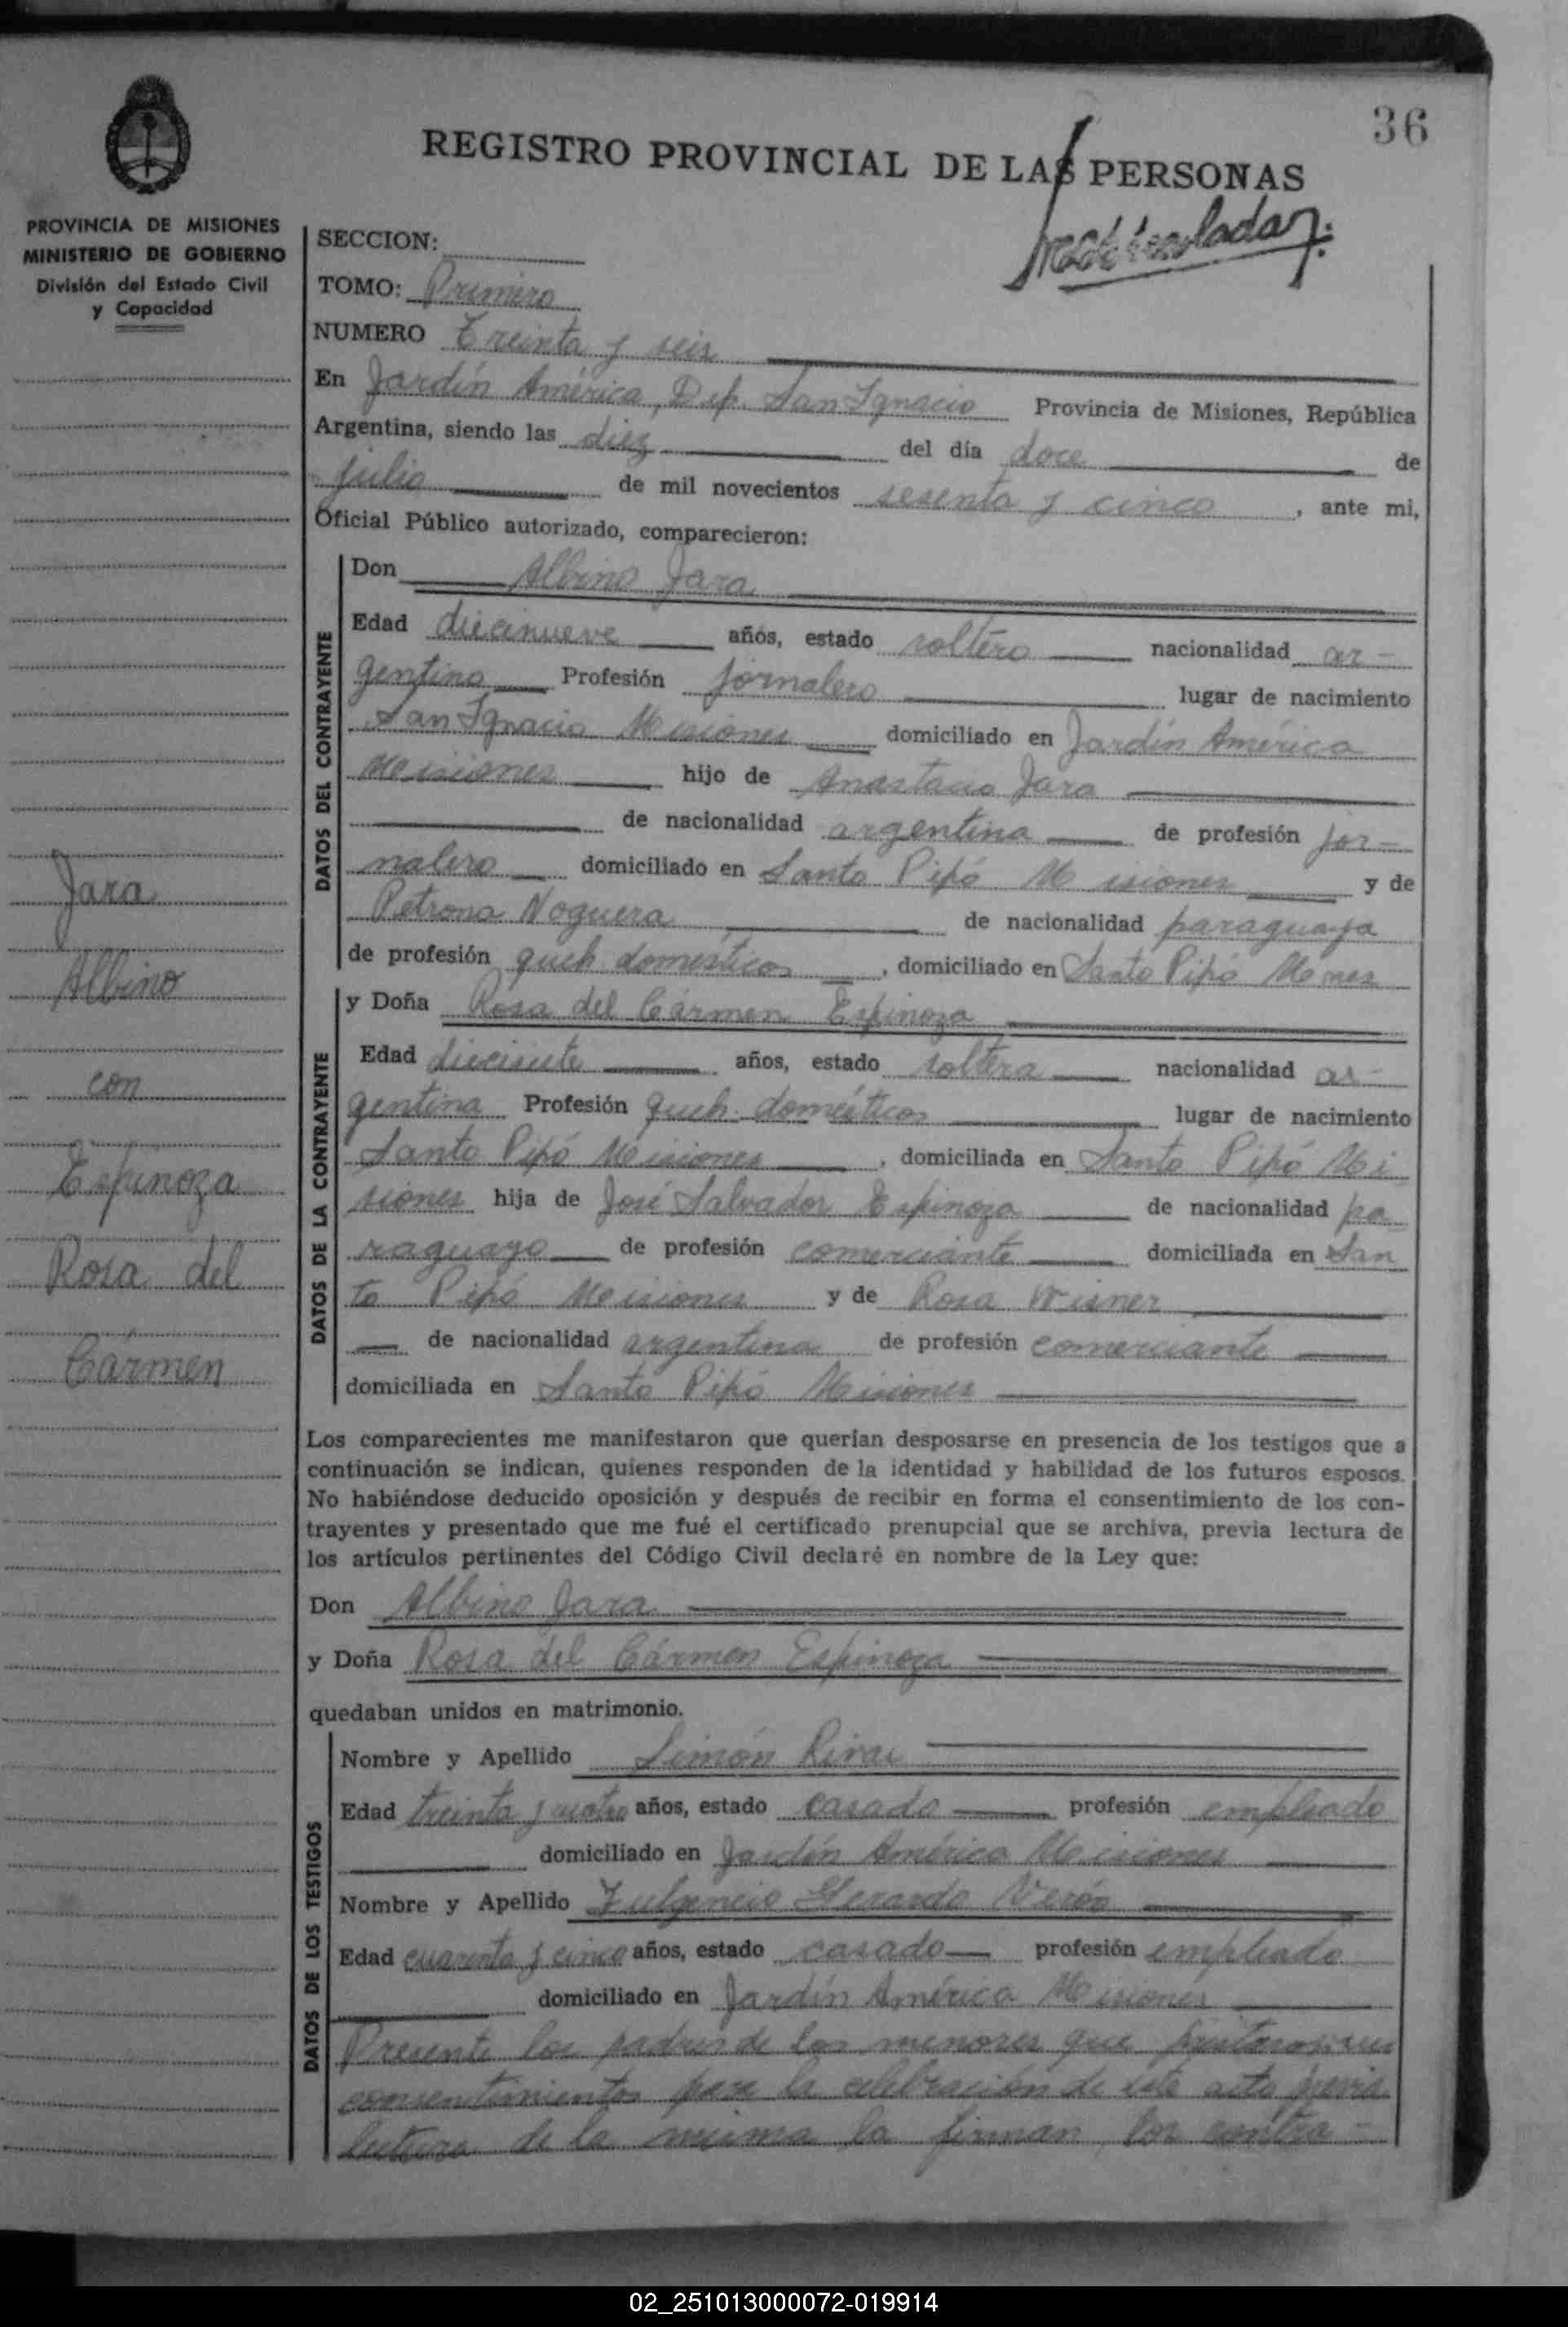 36
REGISTRO PROVINCIAL DE LAS PERSONAS
PROVINCIA DE MISIONES
MINISTERIO DE GOBIERNO
División del Estado Civil
y Capacidad
SECCION:
TOMO: Primero
NUMERO Treinta y seis
En Jardín América, Dep. San Ignacio Provincia de Misiones, República
Argentina, siendo las diez del día doce de
julio de mil novecientos sesenta y cinco, ante mi,
Oficial Público autorizado, comparecieron:
DATOS DEL CONTRAYENTE
Don Albino Jara
Edad diecinueve años, estado soltero nacionalidad ar-
gentino Profesión jornalero lugar de nacimiento
San Ignacio Misiones domiciliado en Jardín América
Misiones hijo de Anastacio Jara
de nacionalidad argentina de profesión jor-
nalero domiciliado en Santo Pipó Misiones y de
Petrona Noguera de nacionalidad paraguaya
de profesión queh. domésticos, domiciliado en Santo Pipó Mones
DATOS DE LA CONTRAYENTE
y Doña Rosa del Cármen Espinoza
Edad diecisiete años, estado soltera nacionalidad ar-
gentina Profesión queh. domésticos lugar de nacimiento
Santo Pipó Misiones, domiciliada en Santo Pipó Mi
siones hija de José Salvador Espinoza de nacionalidad pa
raguayo de profesión comerciante domiciliada en San
to Pipó Misiones y de Rosa Wisner
de nacionalidad argentina de profesión comerciante
domiciliada en Santo Pipó Misiones
Jara
Albino
con
Espinoza
Rosa del
Cármen
Los comparecientes me manifestaron que querían desposarse en presencia de los testigos que a
continuación se indican, quienes responden de la identidad y habilidad de los futuros esposos.
No habiéndose deducido oposición y después de recibir en forma el consentimiento de los con-
trayentes y presentado que me fué el certificado prenupcial que se archiva, previa lectura de
los artículos pertinentes del Código Civil declaré en nombre de la Ley que:
Don Albino Jara
y Doña Rosa del Cármen Espinoza
quedaban unidos en matrimonio.
DATOS DE LOS TESTIGOS
Nombre y Apellido Simón
Edad treinta y cuatro años, estado casado profesión empleado
domiciliado en Jardín América Misiones
Nombre y Apellido Fulgencio Gerardo Verón
Edad cuarenta y cinco años, estado casado profesión empleado
domiciliado en Jardín América Misiones
Presente los padres de los menores que
consentimientos para la celebración de este acto previa
lectura de la misma la firman, los contra-
02_251013000072-019914